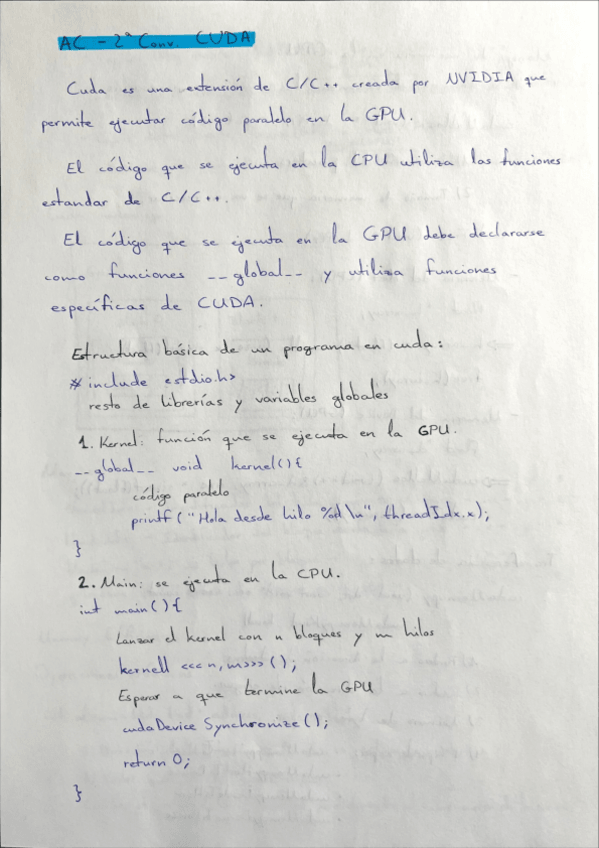 AC - 2ª Conv. CUDA
Cuda es una extensión de C/C++ creada por NVIDIA que
permite ejecutar código paralelo en la GPU.
El código que se ejecuta en la CPU utiliza las funciones
estandar de C/C++.
El código que se ejecuta en la GPU debe declararse
como funciones __global__ y utiliza funciones
específicas de CUDA.
Estructura básica de un programa en cuda:
# include <stdio.h>
resto de librerías y variables globales
1. Kernel: función que se ejecuta en la GPU.
__global__ void kernel(){
código paralelo
printf ("Hola desde hilo %d \n", threadIdx.x);
}
2. Main: se ejecuta en la CPU.
int main(){
Lanzar el kernel con n bloques y m hilos
kernell <<<n,m>>> ();
Esperar a que termine la GPU
cudaDevice Synchronize();
return 0;
}